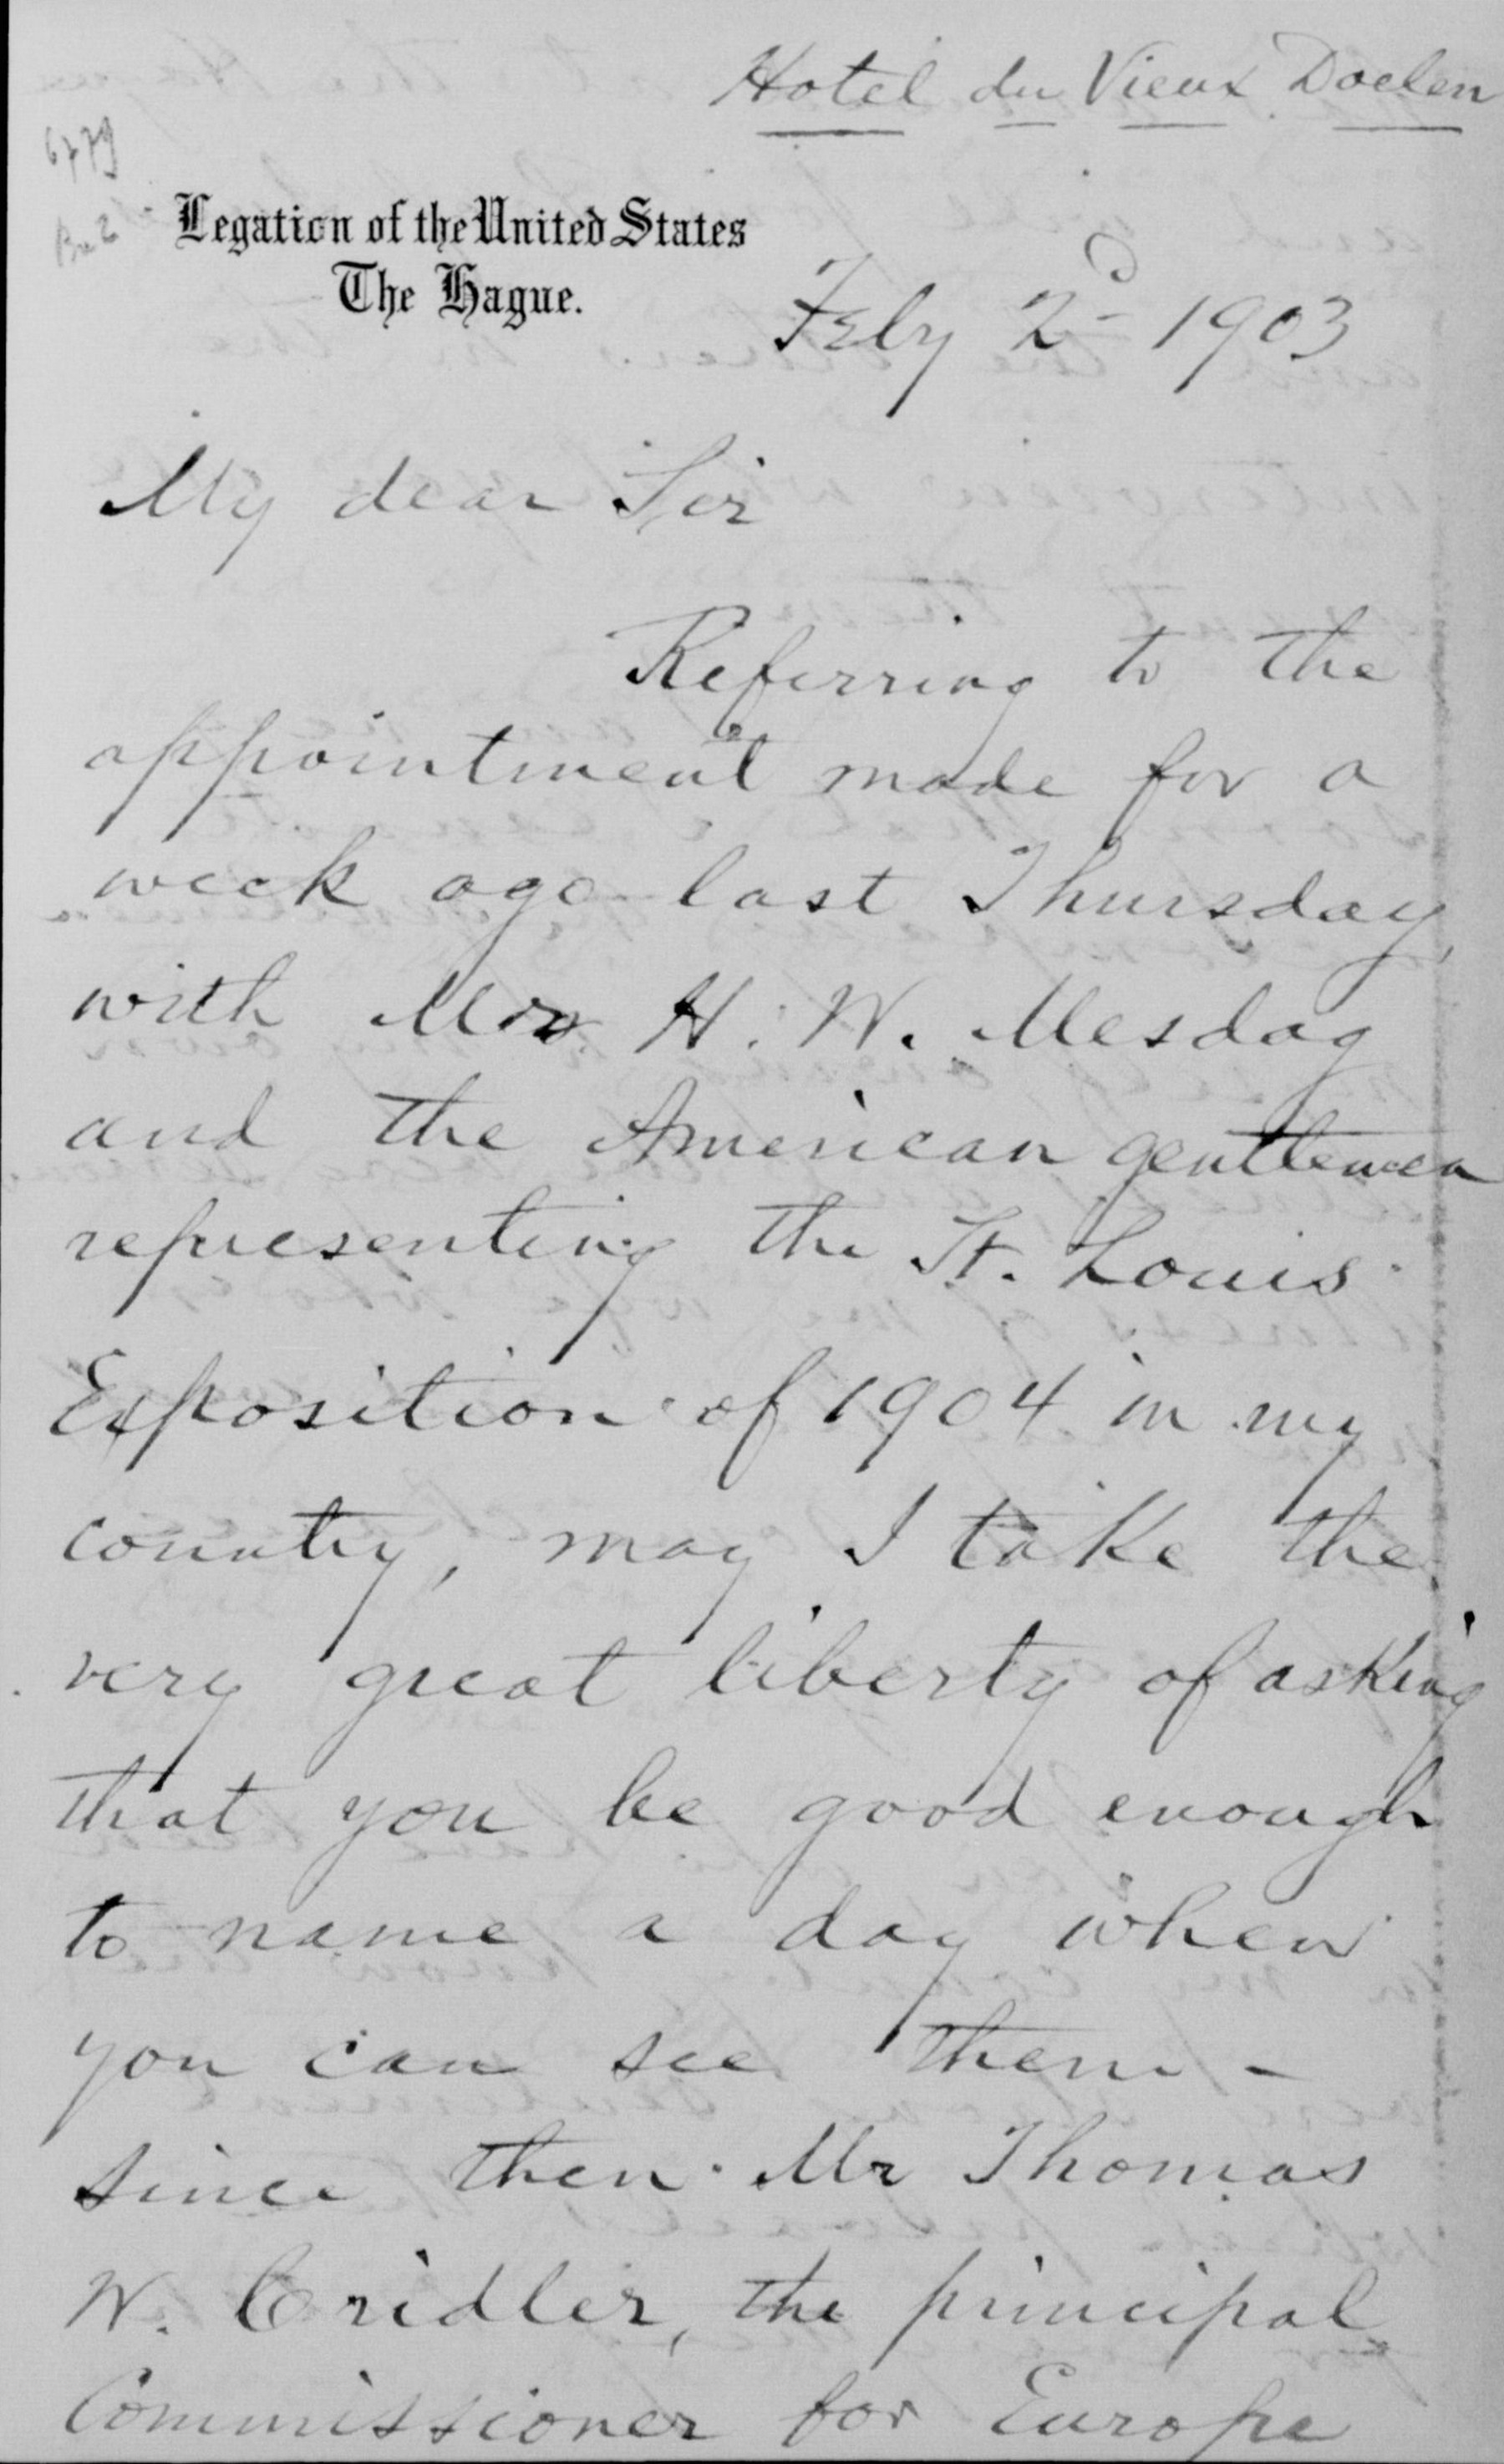 Hotel du Vieux Doelen
6779
Legation of the United States
The Hague.
Feby 2d 1903
My dear Sir
Referring to the
appointment made for a
week ago last Thursday,
with Mr H. W. Mesdag
and the American gentlemen
representing the St. Louis
Exposition of 1904 in my
country, may I take the
very great liberty of asking
that you be good enough
to name a day when
you can see them -
since then Mr Thomas
W. Cridler, the principal
Commissioner for Europe